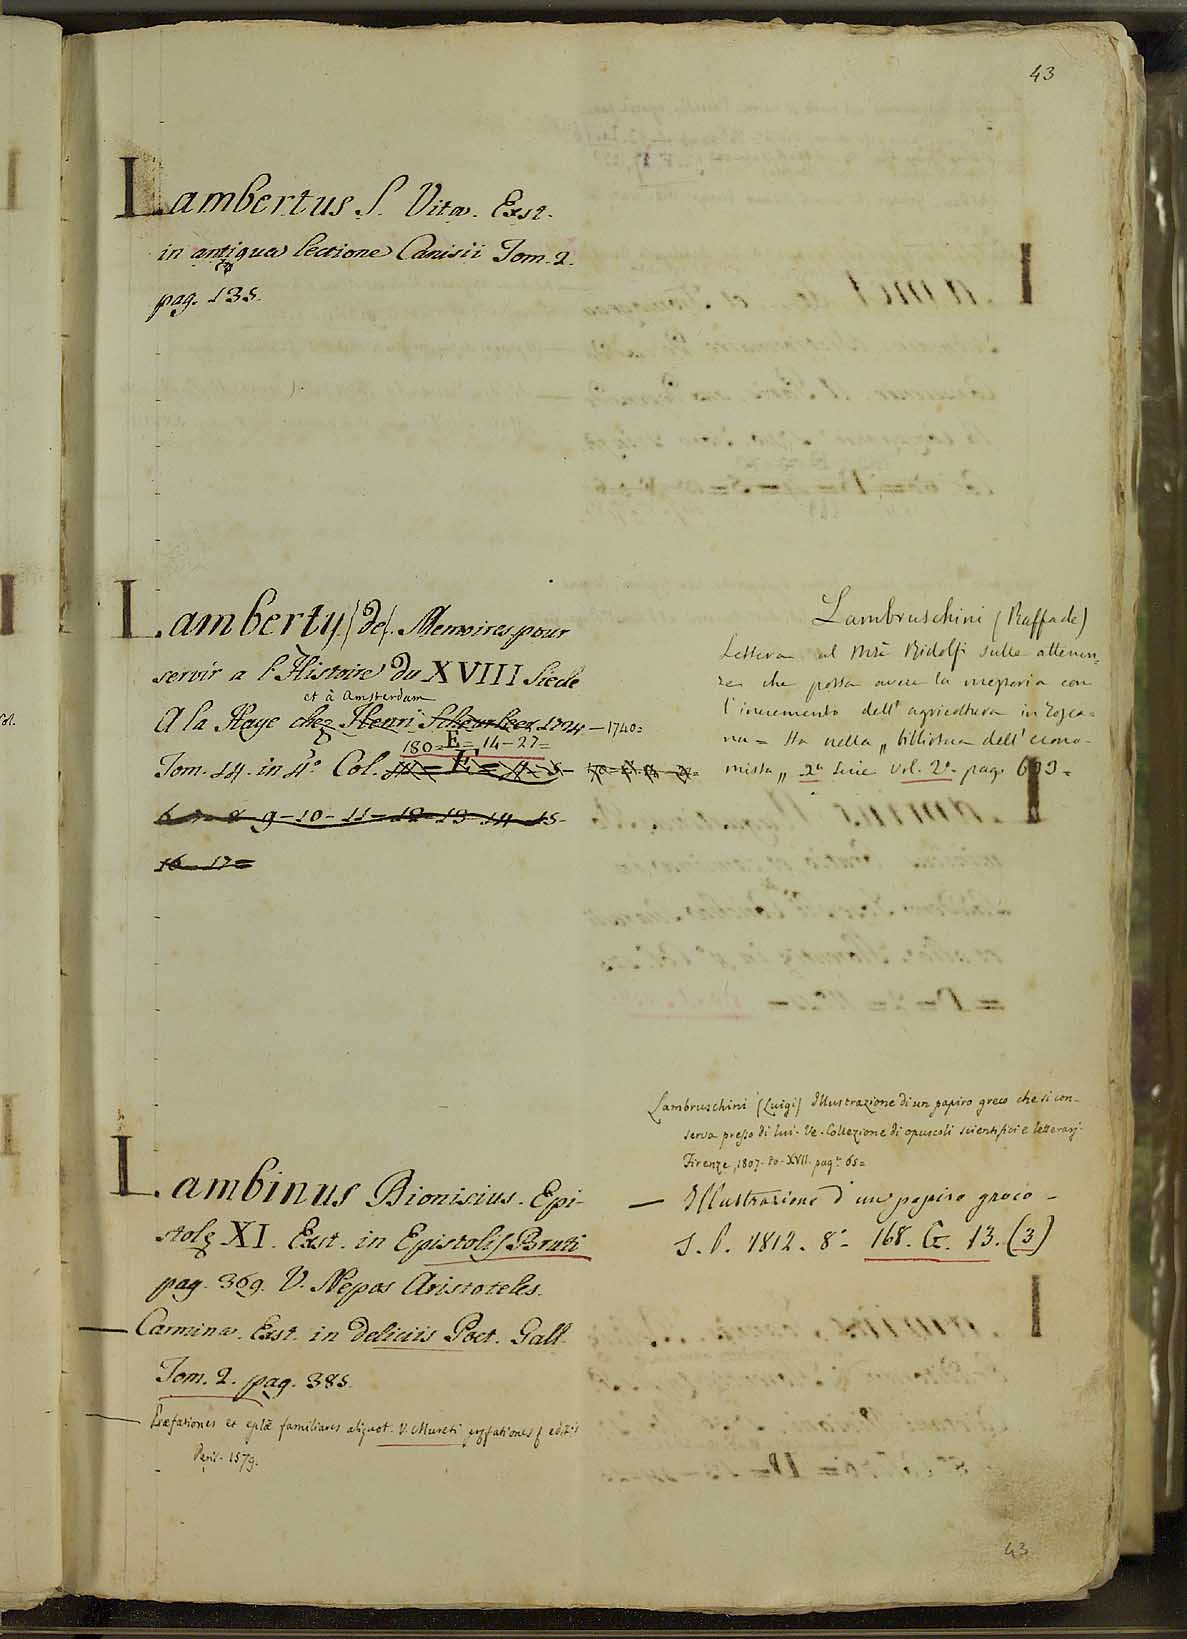 43
Lambertus S. Vita. Exst.
in antiqua lectione Canisii Tom. 2.
pag. 135.
Lamberty (de). Memoires pour
servir a l'Histoire du XVIII Siecle
et à Amsterdam
A la Haye chez Henri Scheurleer 1724 – 1740=
180= E = 14–27=
Tom. 14. in 4° Col.
6 – 7 – 8 – 9 – 10 – 11 – 12 – 13 – 14 – 15 –
16 – 17 =
Lambinus Dionisius. Epi-
stolę XI. Exst. in Epistolis Bruti
pag. 369. V. Nepos Aristoteles.
— Carmina. Exst. in deliciis Poet. Gall.
Tom. 2. pag. 385.
— Præfationes et eplæ familiares aliquot. V. Mureti
Paris. 1579.
Lambruschini (Raffaele)
Lettera al Mse Ridolfi sulle attenen-
ze che possa avere la memoria con
l'incremento dell'agricoltura in Tosca=
na = Sta nella „ biblioteca dell'
2a Serie Vol. 2° pag.
Lambruschini (Luigi) Illustrazione di un papiro greco che si con-
serva presso di lui. Ve. Collezione di opuscoli scientifici e letterarj.
Firenze, 1807. to. XVII. pag. 65=
— Illustrazione d'un papiro greco –
S. l. 1812. 8° – 168. G. 13. (3)
43